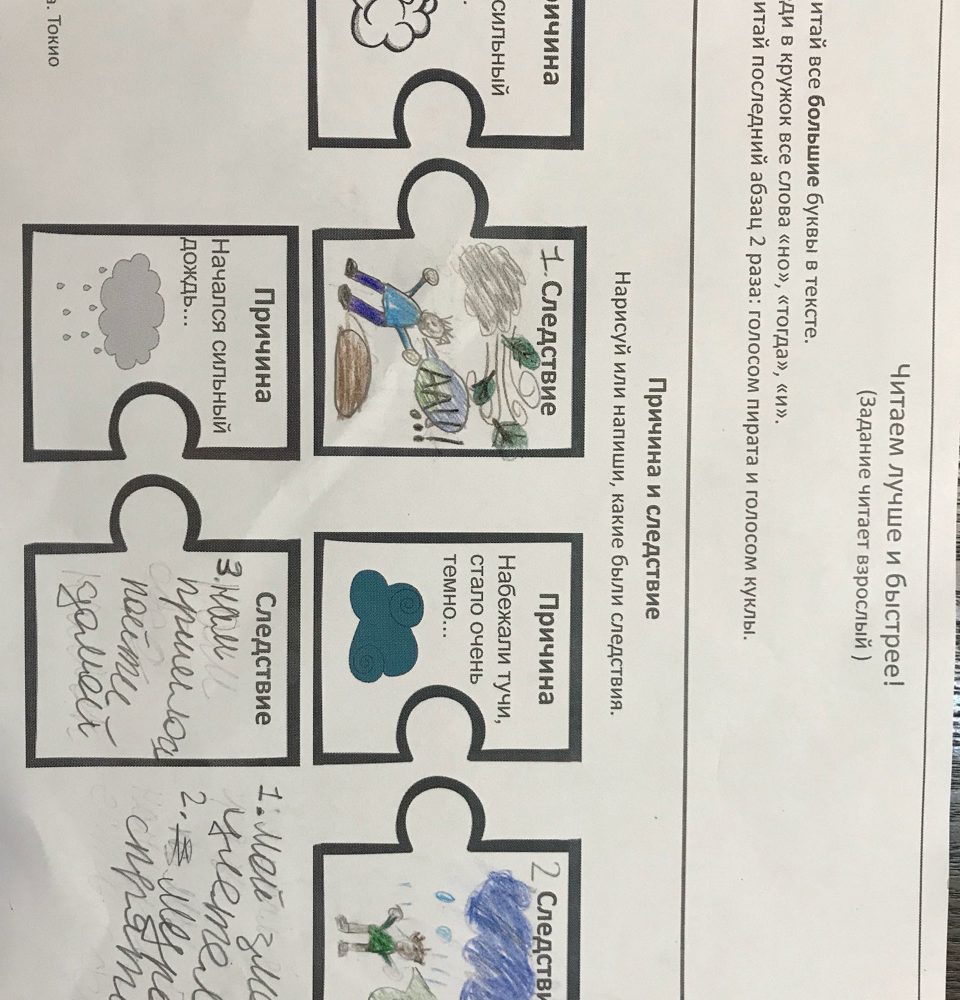 Читаем лучше и быстрее!
(Задание читает взрослый )
итай все большие буквы в тексте.
ди в кружок все слова «но», «тогда», «и».
итай последний абзац 2 раза: голосом пирата и голосом куклы.
Причина и следствие
Нарисуй или напиши, какие были следствия.
ричина
сильный
1. Следствие
Причина
Набежали тучи,
стало очень
темно...
2 Следстви
Причина
Начался сильный
дождь...
Следствие
3. нам
пришлось
пойте
1. Мой
улетел
2.
а. Токио